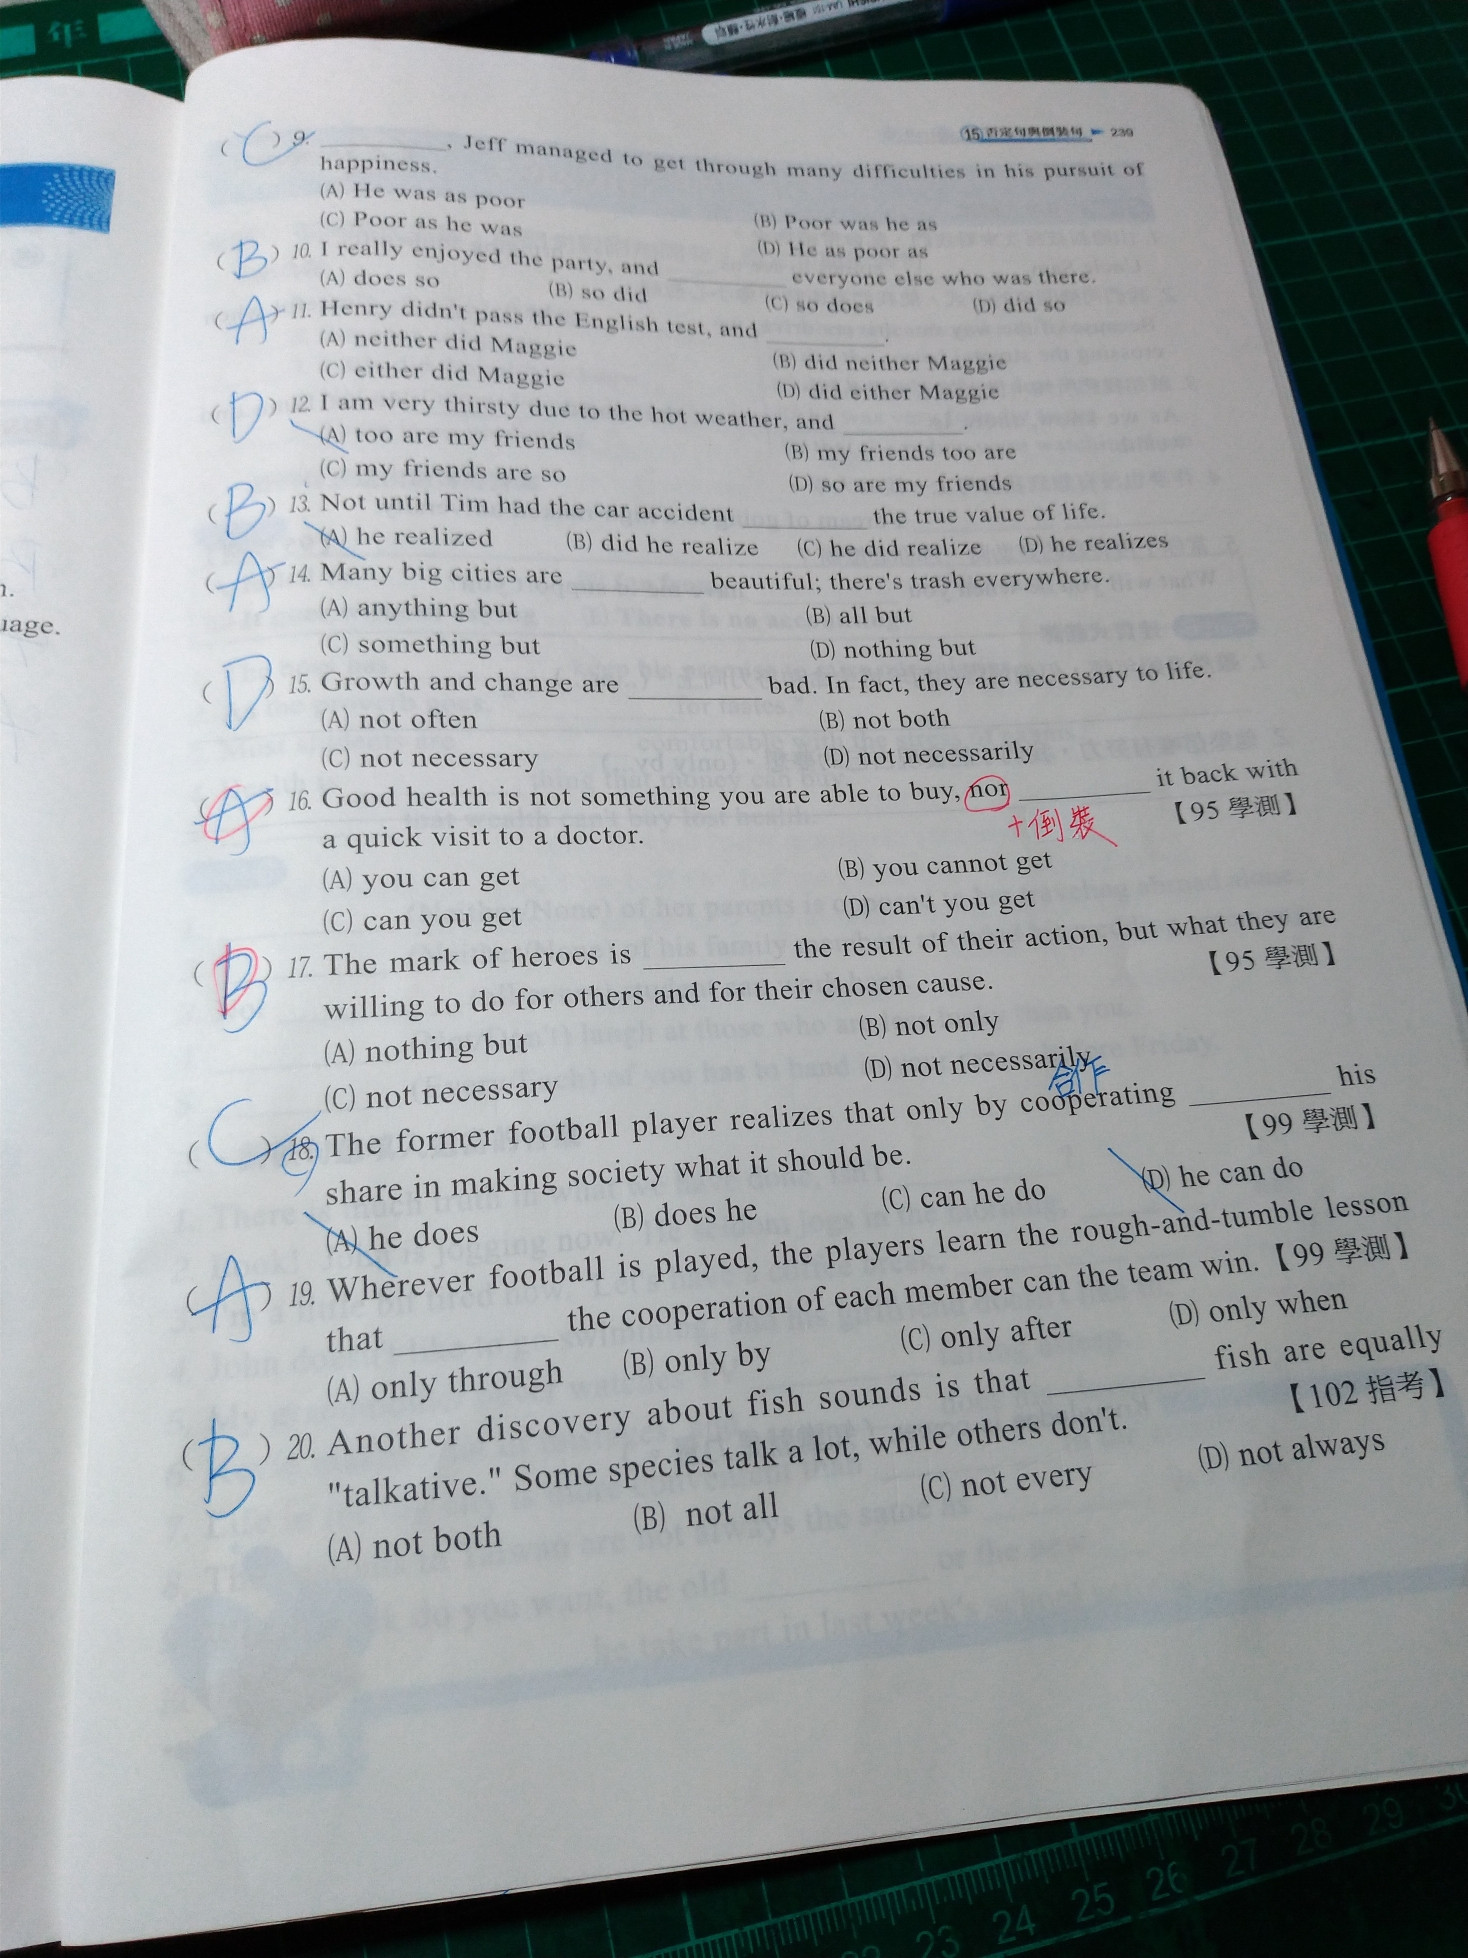 15 否定句與倒裝句 239
( C ) 9. ________, Jeff managed to get through many difficulties in his pursuit of
happiness.
(A) He was as poor
(B) Poor was he as
(C) Poor as he was
(D) He as poor as
( B ) 10. I really enjoyed the party, and ________ everyone else who was there.
(A) does so (B) so did (C) so does (D) did so
( A ) 11. Henry didn't pass the English test, and ________.
(A) neither did Maggie (B) did neither Maggie
(C) either did Maggie (D) did either Maggie
( D ) 12. I am very thirsty due to the hot weather, and ________.
(A) too are my friends (B) my friends too are
(C) my friends are so (D) so are my friends
( B ) 13. Not until Tim had the car accident ________ the true value of life.
(A) he realized (B) did he realize (C) he did realize (D) he realizes
( A ) 14. Many big cities are ________ beautiful; there's trash everywhere.
(A) anything but (B) all but
(C) something but (D) nothing but
( D ) 15. Growth and change are ________ bad. In fact, they are necessary to life.
(A) not often (B) not both
(C) not necessary (D) not necessarily
( A ) 16. Good health is not something you are able to buy, nor ________ it back with
a quick visit to a doctor. +倒裝 【95 學測】
(A) you can get (B) you cannot get
(C) can you get (D) can't you get
( B ) 17. The mark of heroes is ________ the result of their action, but what they are
willing to do for others and for their chosen cause. 【95 學測】
(A) nothing but (B) not only
(C) not necessary (D) not necessarily
合作
( C ) 18. The former football player realizes that only by cooperating ________ his
share in making society what it should be. 【99 學測】
(A) he does (B) does he (C) can he do (D) he can do
( A ) 19. Wherever football is played, the players learn the rough-and-tumble lesson
that ________ the cooperation of each member can the team win. 【99 學測】
(A) only through (B) only by (C) only after (D) only when
( B ) 20. Another discovery about fish sounds is that ________ fish are equally
"talkative." Some species talk a lot, while others don't. 【102 指考】
(A) not both (B) not all (C) not every (D) not always
uage.
年
23 24 25 26 27 28 29